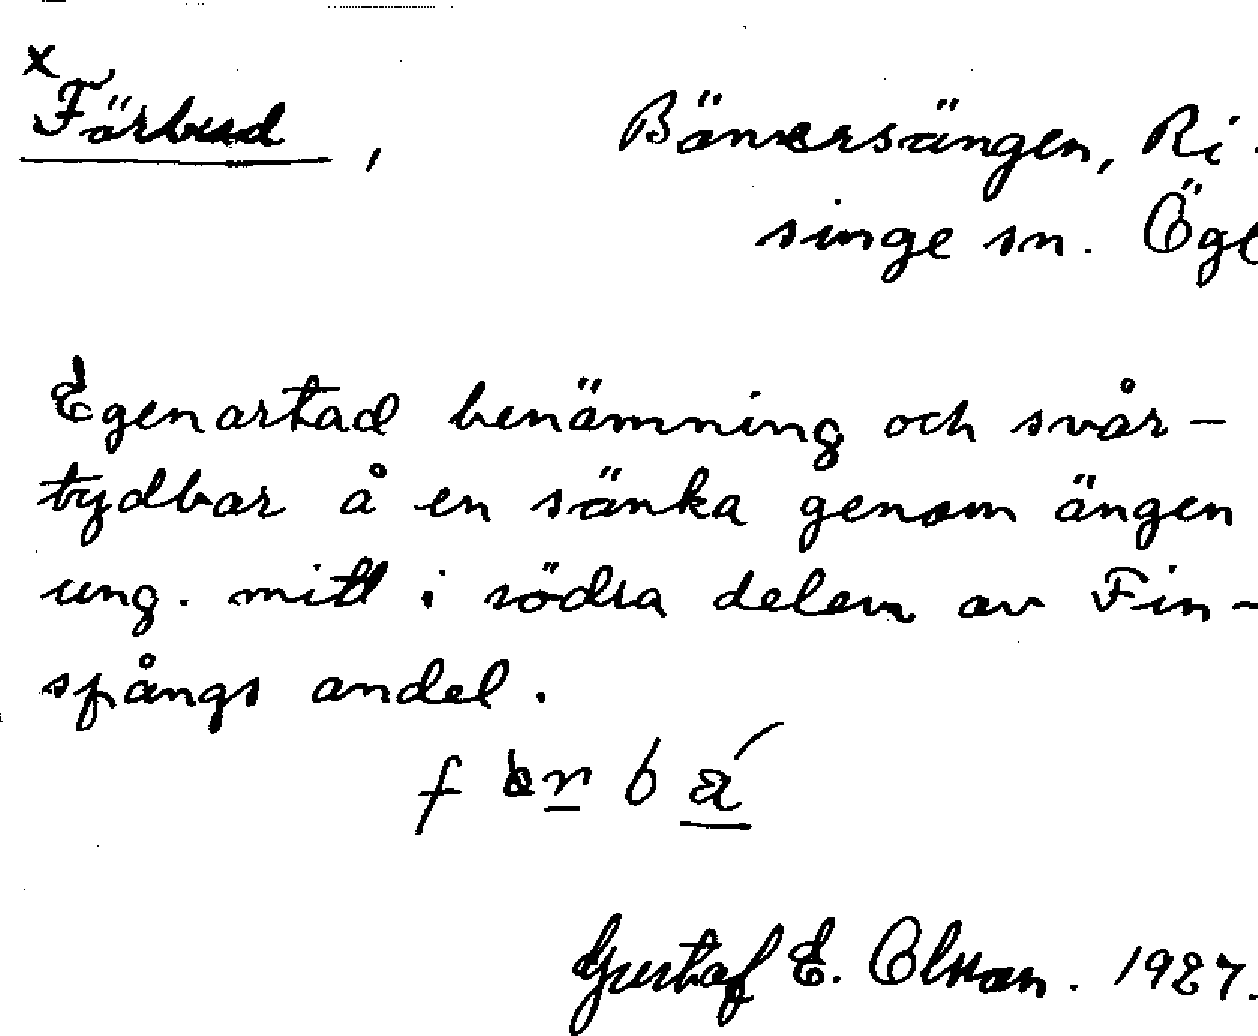 x
Förbud, Bänkersängen, Ri-
singe sn. Ögl
Egenartad benämning och svår-
tydbar å en sänka genom ängen
ung. mitt i södra delen av Fin-
spångs andel.
Gustaf E. Olsson. 1927.